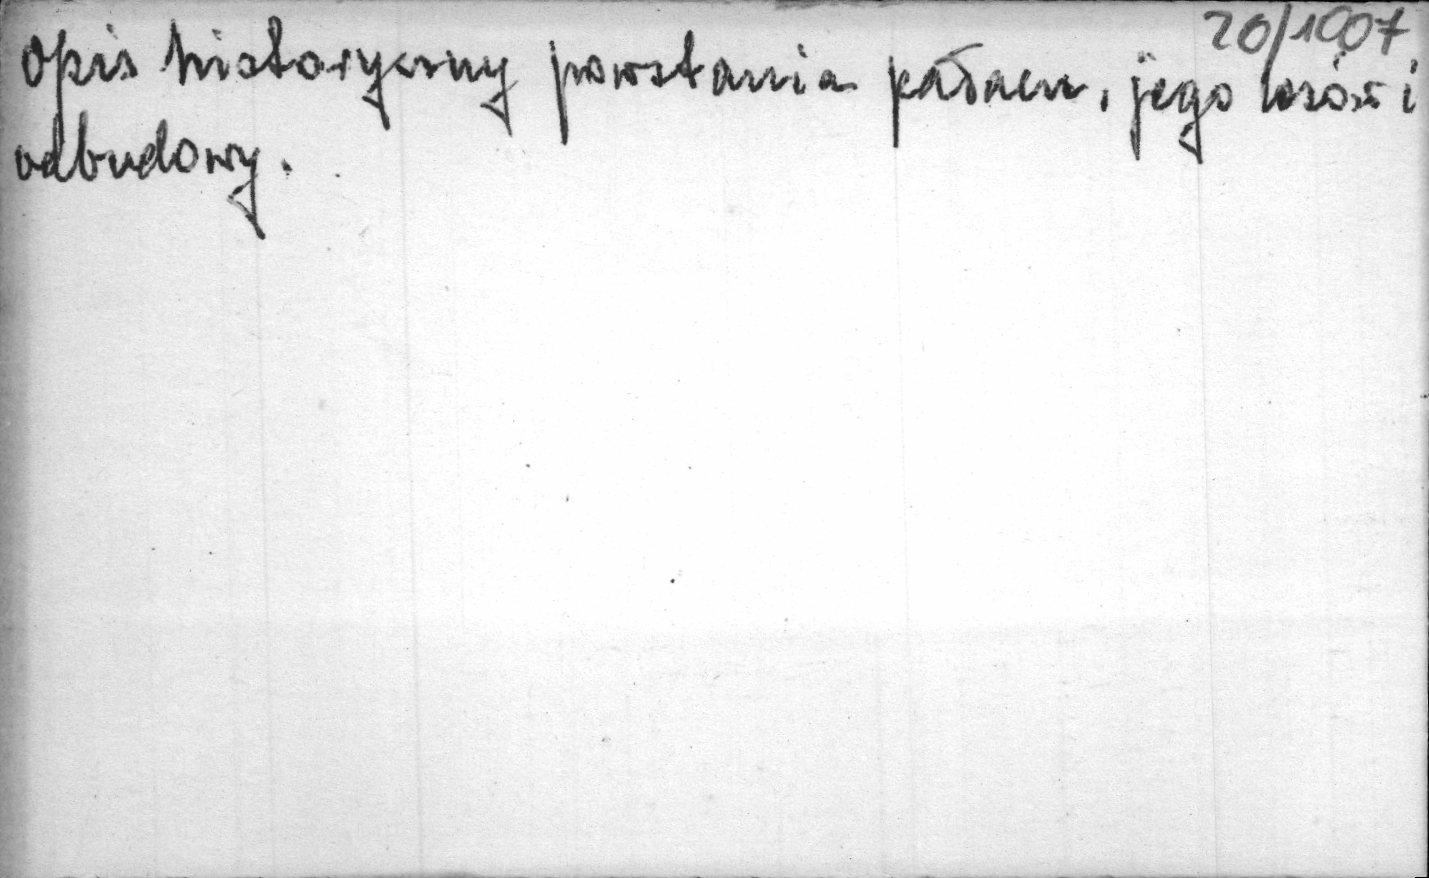 20/1007
Opis historyczny powstania pałacu, jego losów i
odbudowy.